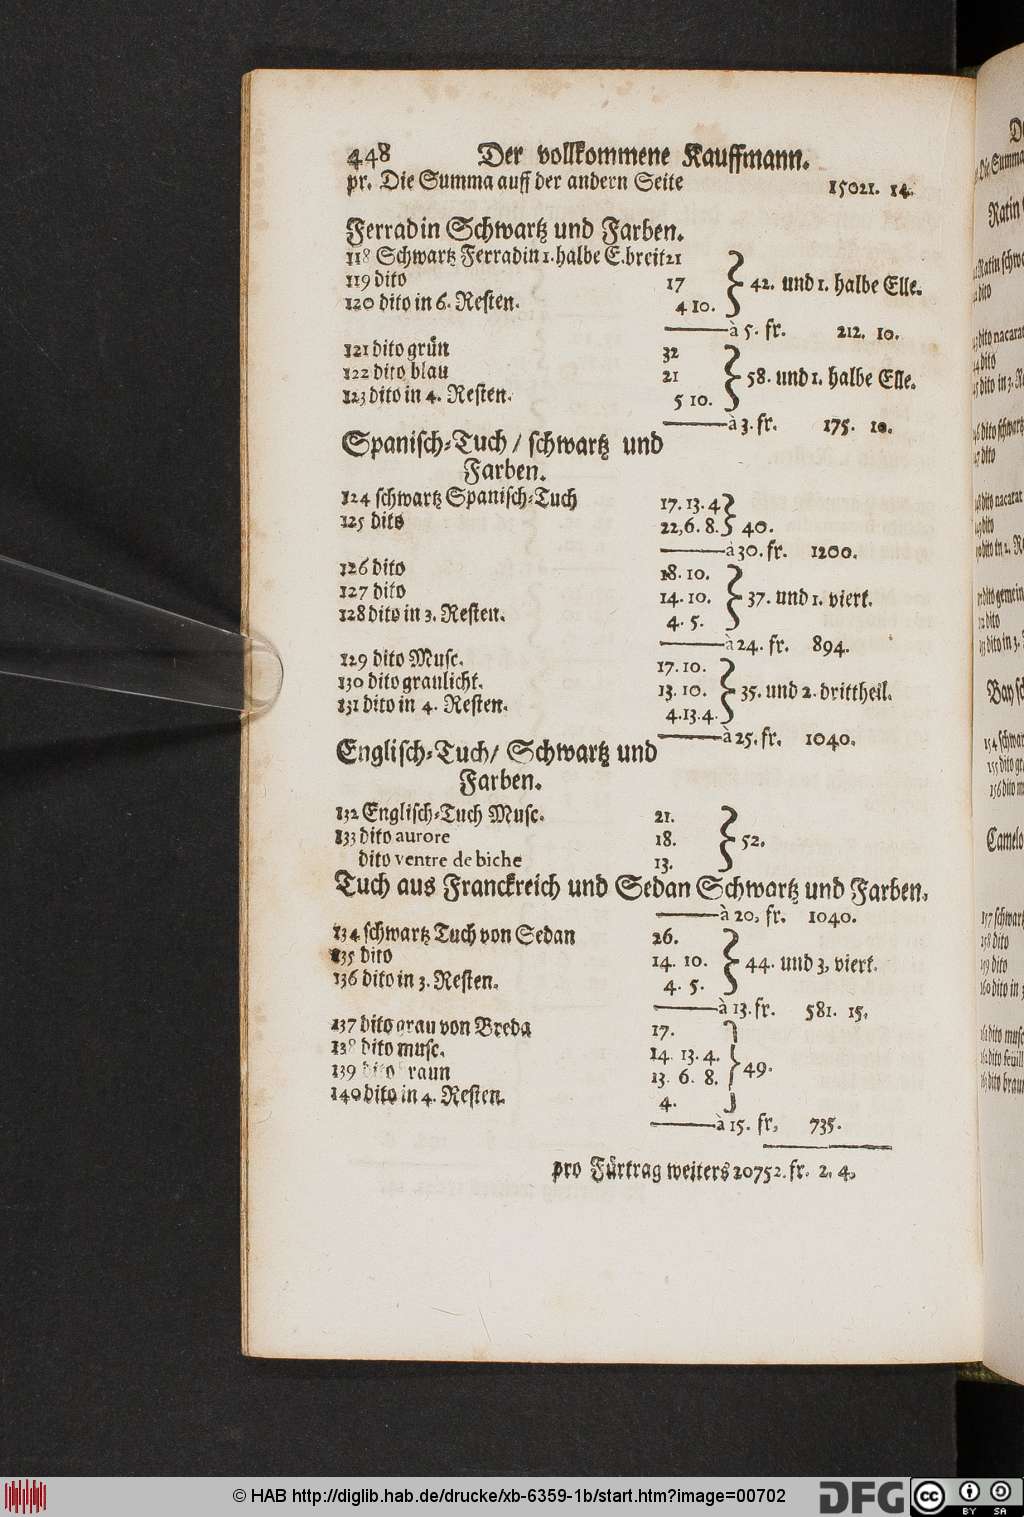 448 Der vollkommene Kauffmann.
pr. Die Summa auff der andern Seite 15021. 14.
Ferradin Schwartz und Farben.
118 Schwartz Ferradin 1. halbe E. breit 21
119 dito 17 } 42. und 1. halbe Elle.
120 dito in 6. Resten. 4 10.
à 5. fr. 212. 10.
121 dito grün 32
122 dito blau 21 } 58. und 1. halbe Elle.
123 dito in 4. Resten. 5 10.
à 3. fr. 175. 10.
Spanisch-Tuch / schwartz und
Farben.
124 schwartz Spanisch-Tuch 17. 13. 4
125 dito 22,6. 8. } 40.
à 30. fr. 1200.
126 dito 18. 10.
127 dito 14. 10. } 37. und 1. viert.
128 dito in 3. Resten. 4. 5.
à 24. fr. 894.
129 dito Musc. 17. 10.
130 dito graulicht. 13. 10. } 35. und 2. drittheil.
131 dito in 4. Resten. 4. 13. 4.
à 25. fr. 1040.
Englisch-Tuch / Schwartz und
Farben.
132 Englisch-Tuch Musc. 21.
133 dito aurore 18. } 52.
dito ventre de biche 13.
Tuch aus Franckreich und Sedan Schwartz und Farben,
à 20, fr. 1040.
134 schwartz Tuch von Sedan 26.
135 dito 14. 10. } 44. und 3, viert.
136 dito in 3. Resten. 4. 5.
à 13. fr. 581. 15,
137 dito grau von Breda 17.
138 dito musc. 14. 13. 4.
139 dito raun 13. 6. 8. } 49.
140 dito in 4. Resten. 4.
à 15. fr, 735.
pro Fürtrag weiters 20752. fr. 2. 4,
© HAB http://diglib.hab.de/drucke/xb-6359-1b/start.htm?image=00702
DFG
cc BY SA